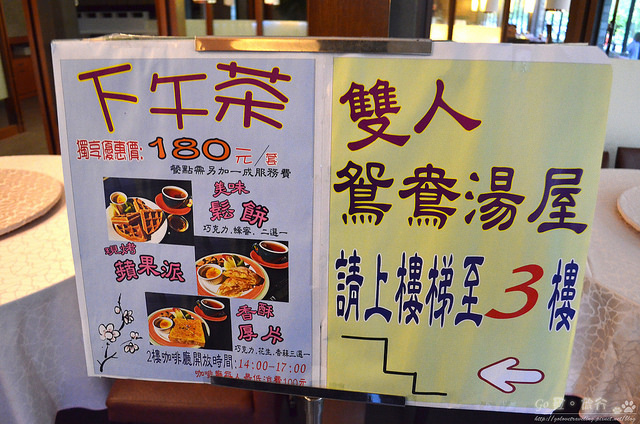 下午茶
獨享優惠價:180元/套
餐點需另加一成服務費
美味
鬆餅
巧克力、蜂蜜,二選一
現烤
蘋果派
香酥
厚片
巧克力、花生、香蒜三選一
2樓咖啡廳開放時間:14:00-17:00
咖啡廳每人最低消費100元
雙人
鴛鴦湯屋
請上樓梯至3樓